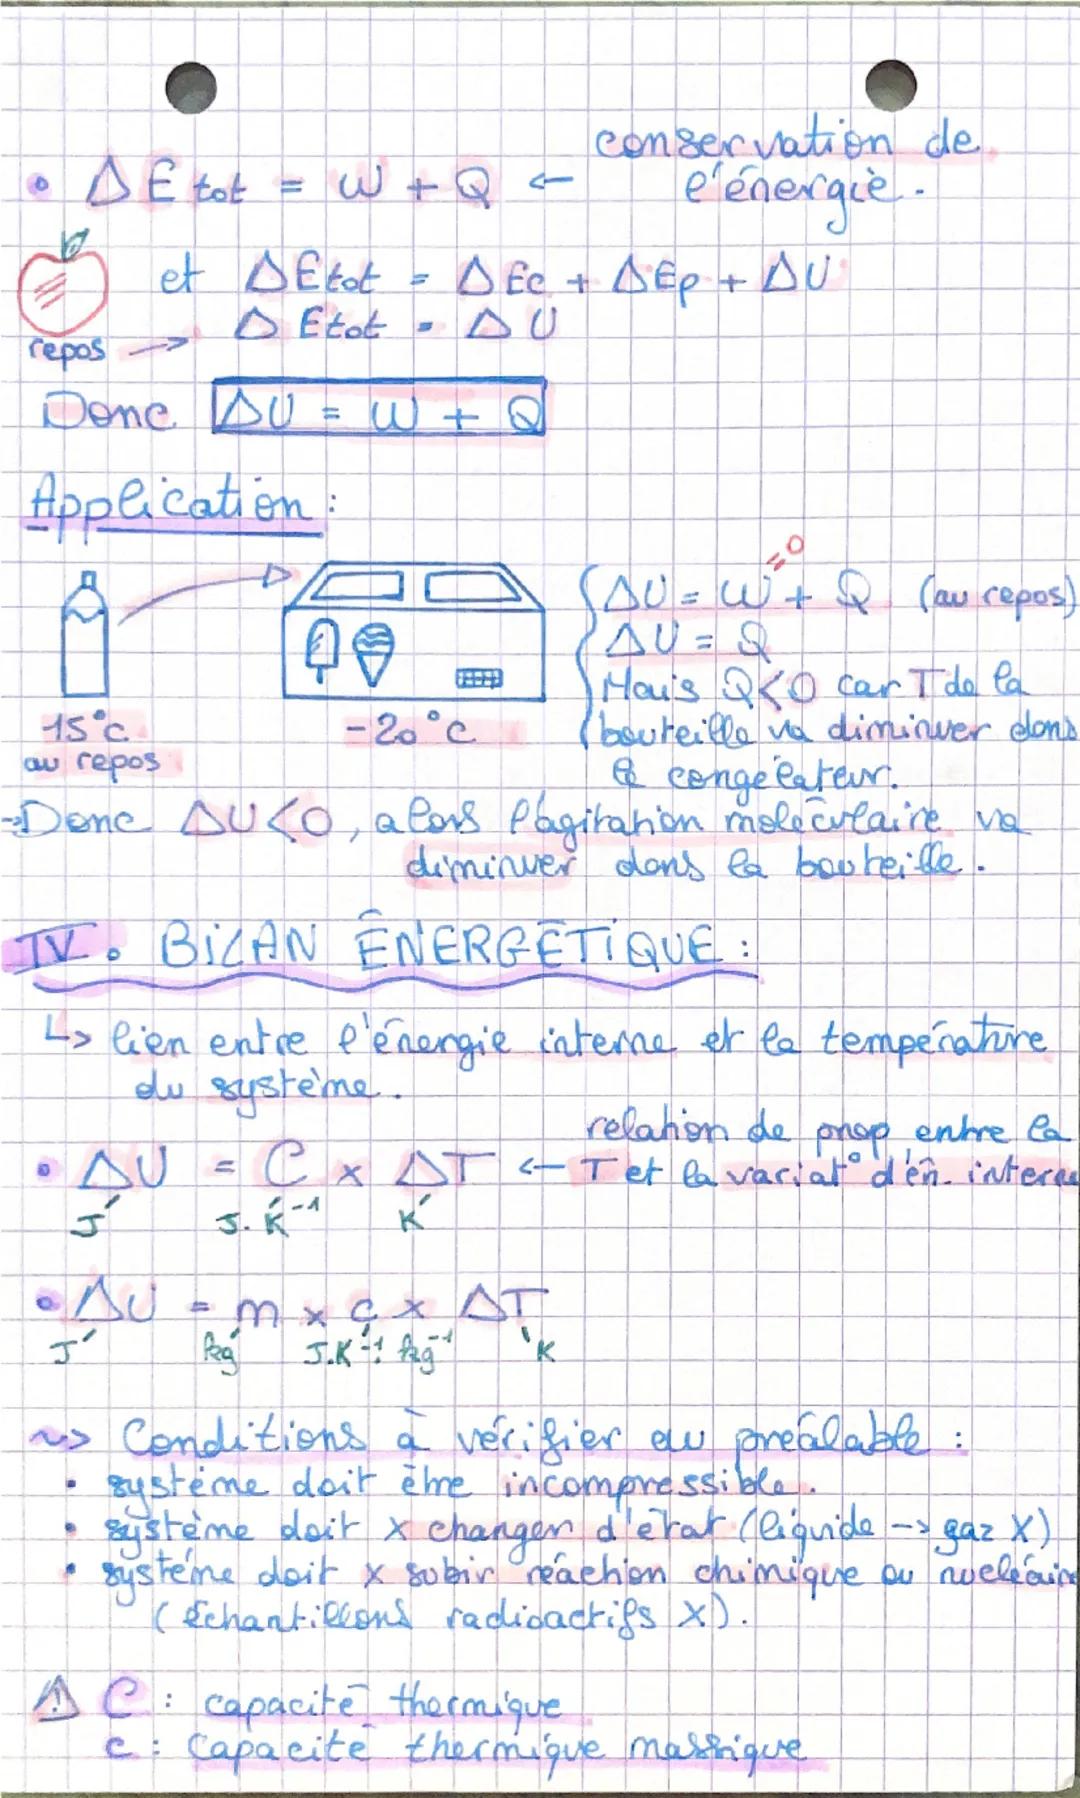 • ΔE tot = W + Q ← conservation de l'énergie.
et ΔEtot = ΔEc + ΔEp + ΔU
repos → ΔEtot = ΔU
Donc ΔU = W + Q
Application :
15°C
au repos
-20°C
ΔU = W + Q (au repos)
=0
ΔU = Q
Mais Q<0 car T de la
bouteille va diminuer dans
le congélateur.
→ Donc ΔU<0, alors l'agitation moléculaire va
diminuer dans la bouteille.
IV. BILAN ÉNERGÉTIQUE :
↳ lien entre l'énergie interne et la température
du système.
• ΔU = C × ΔT ← relation de prop entre la
T et la variat° d'én. interne
J J.K⁻¹ K
• ΔU = m × c × ΔT
J kg J.K⁻¹.kg⁻¹ K
~> Conditions à vérifier au préalable :
• système doit être incompressible.
• système doit x changer d'état (liquide -> gaz X)
• système doit x subir réaction chimique ou nucléaire
(échantillons radioactifs X).
⚠ C : capacité thermique
c : capacité thermique massique